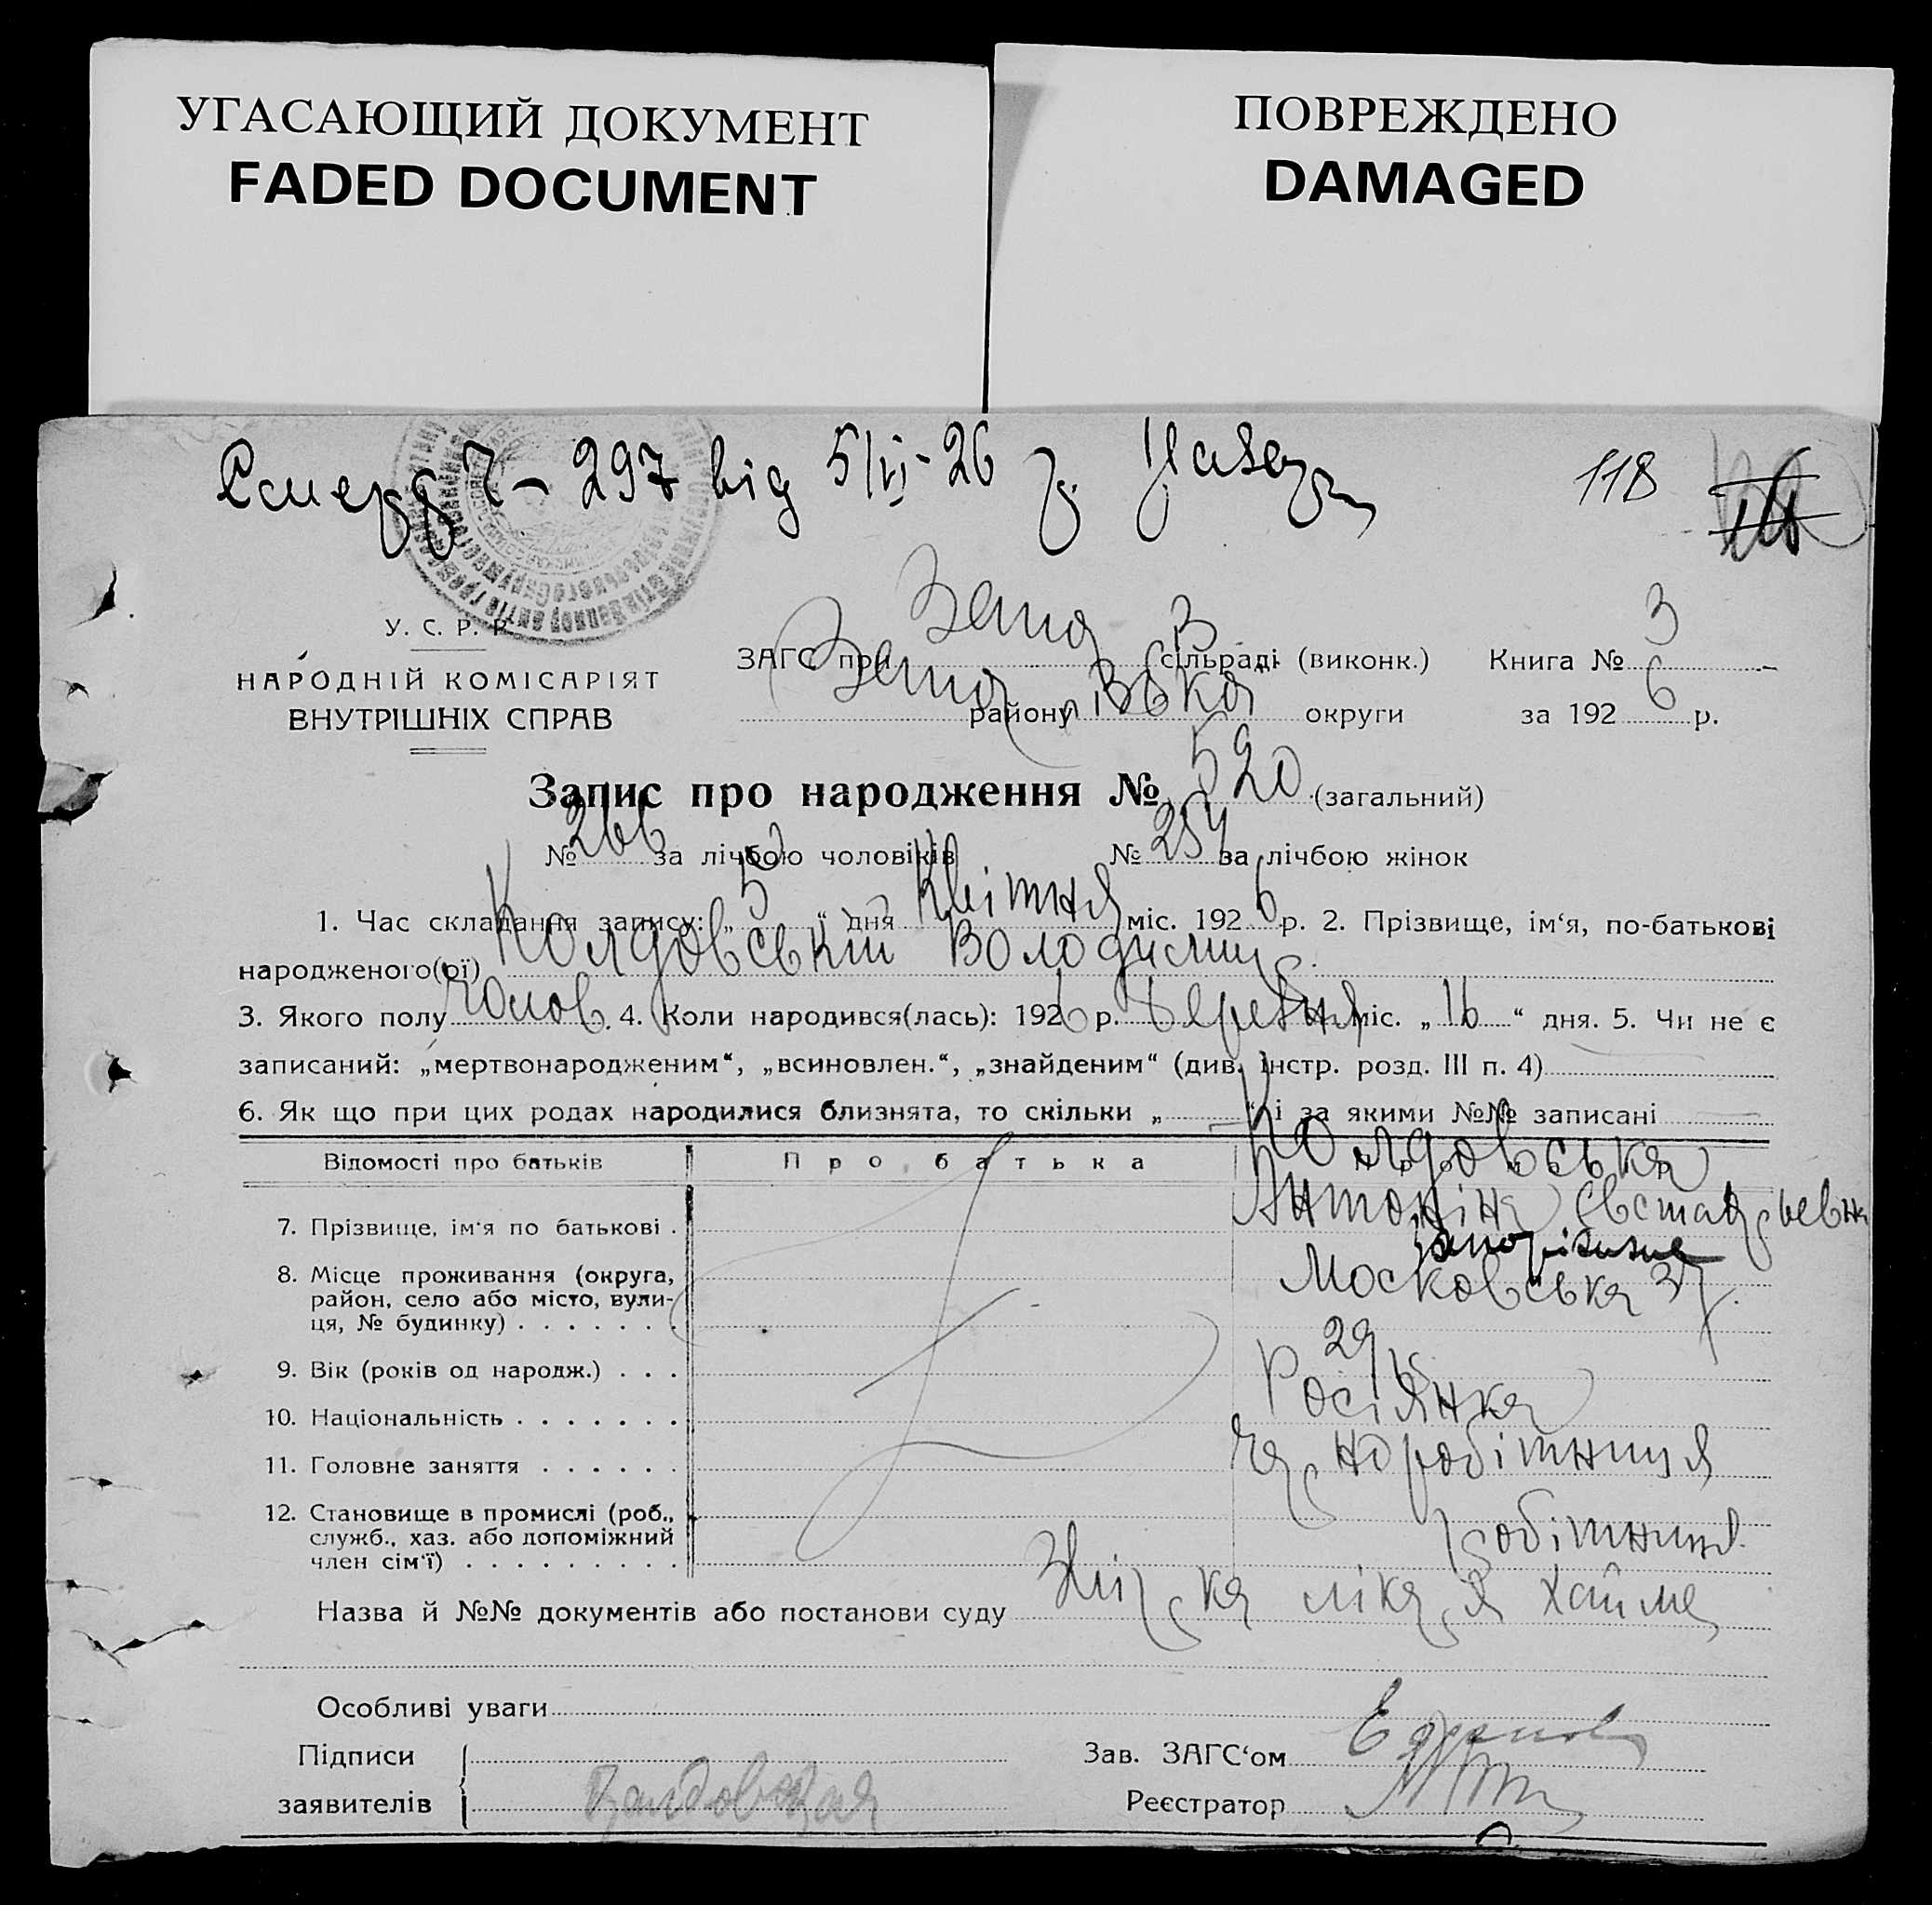 УГАСАЮЩИЙ ДОКУМЕНТ
FADED DOCUMENT
ПОВРЕЖДЕНО
DAMAGED
297 від 5/VI-26 р.
118
У. С. Р. Р.
НАРОДНІЙ КОМІСАРІЯТ
ВНУТРІШНІХ СПРАВ
ЗАГС при Запор сільраді (виконк.) Книга № 3
Запор району округи за 1926 р.
Запис про народження № 520 (загальний)
№ 266 за лічбою чоловіків № 254 за лічбою жінок
1. Час складання запису: „5“ дня Квітня міс. 1926 р. 2. Прізвище, ім‘я, по-батькові
народженого(ої) Колдовський Володимир
3. Якого полу чолов. 4. Коли народився(лась): 1926 р. березня міс. „16“ дня. 5. Чи не є
записаний: „мертвонародженим“, „всиновлен.“, „знайденим“ (див. інстр. розд. III п. 4)
6. Як що при цих родах народилися близнята, то скільки „ “ і за якими №№ записані
Відомості про батьків Про батька
7. Прізвище, ім‘я по батькові . Колдовська
Антоніна Євстафьевна
8. Місце проживання (округа, район, село або місто, вулиця, № будинку) . . . . . . . Запоріжжя
Московська 37
9. Вік (років од народж.) . . . 29 р.
10. Національність . . . . . . . Росіянка
11. Головне заняття . . . . . . Чорноробітниця
12. Становище в промислі (роб., служб., хаз. або допоміжний член сім‘ї) . . . . . . . . . робітниця
Назва й №№ документів або постанови суду лікаря
Особливі уваги
Підписи
заявителів
Зав. ЗАГС‘ом
Реєстратор